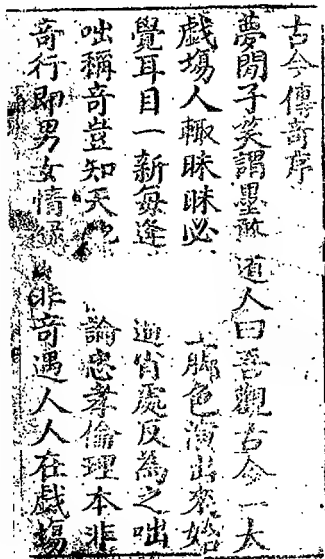 古今傳奇序
夢閒子笑謂墨憨道人曰吾觀古今一大
戲場人輒昧昧必上脚色演出來始
覺耳目一新每逢逍肖處反為之咄
咄稱奇豈知天地論忠孝倫理本非
奇行即男女情緣非奇遇人人在戲場